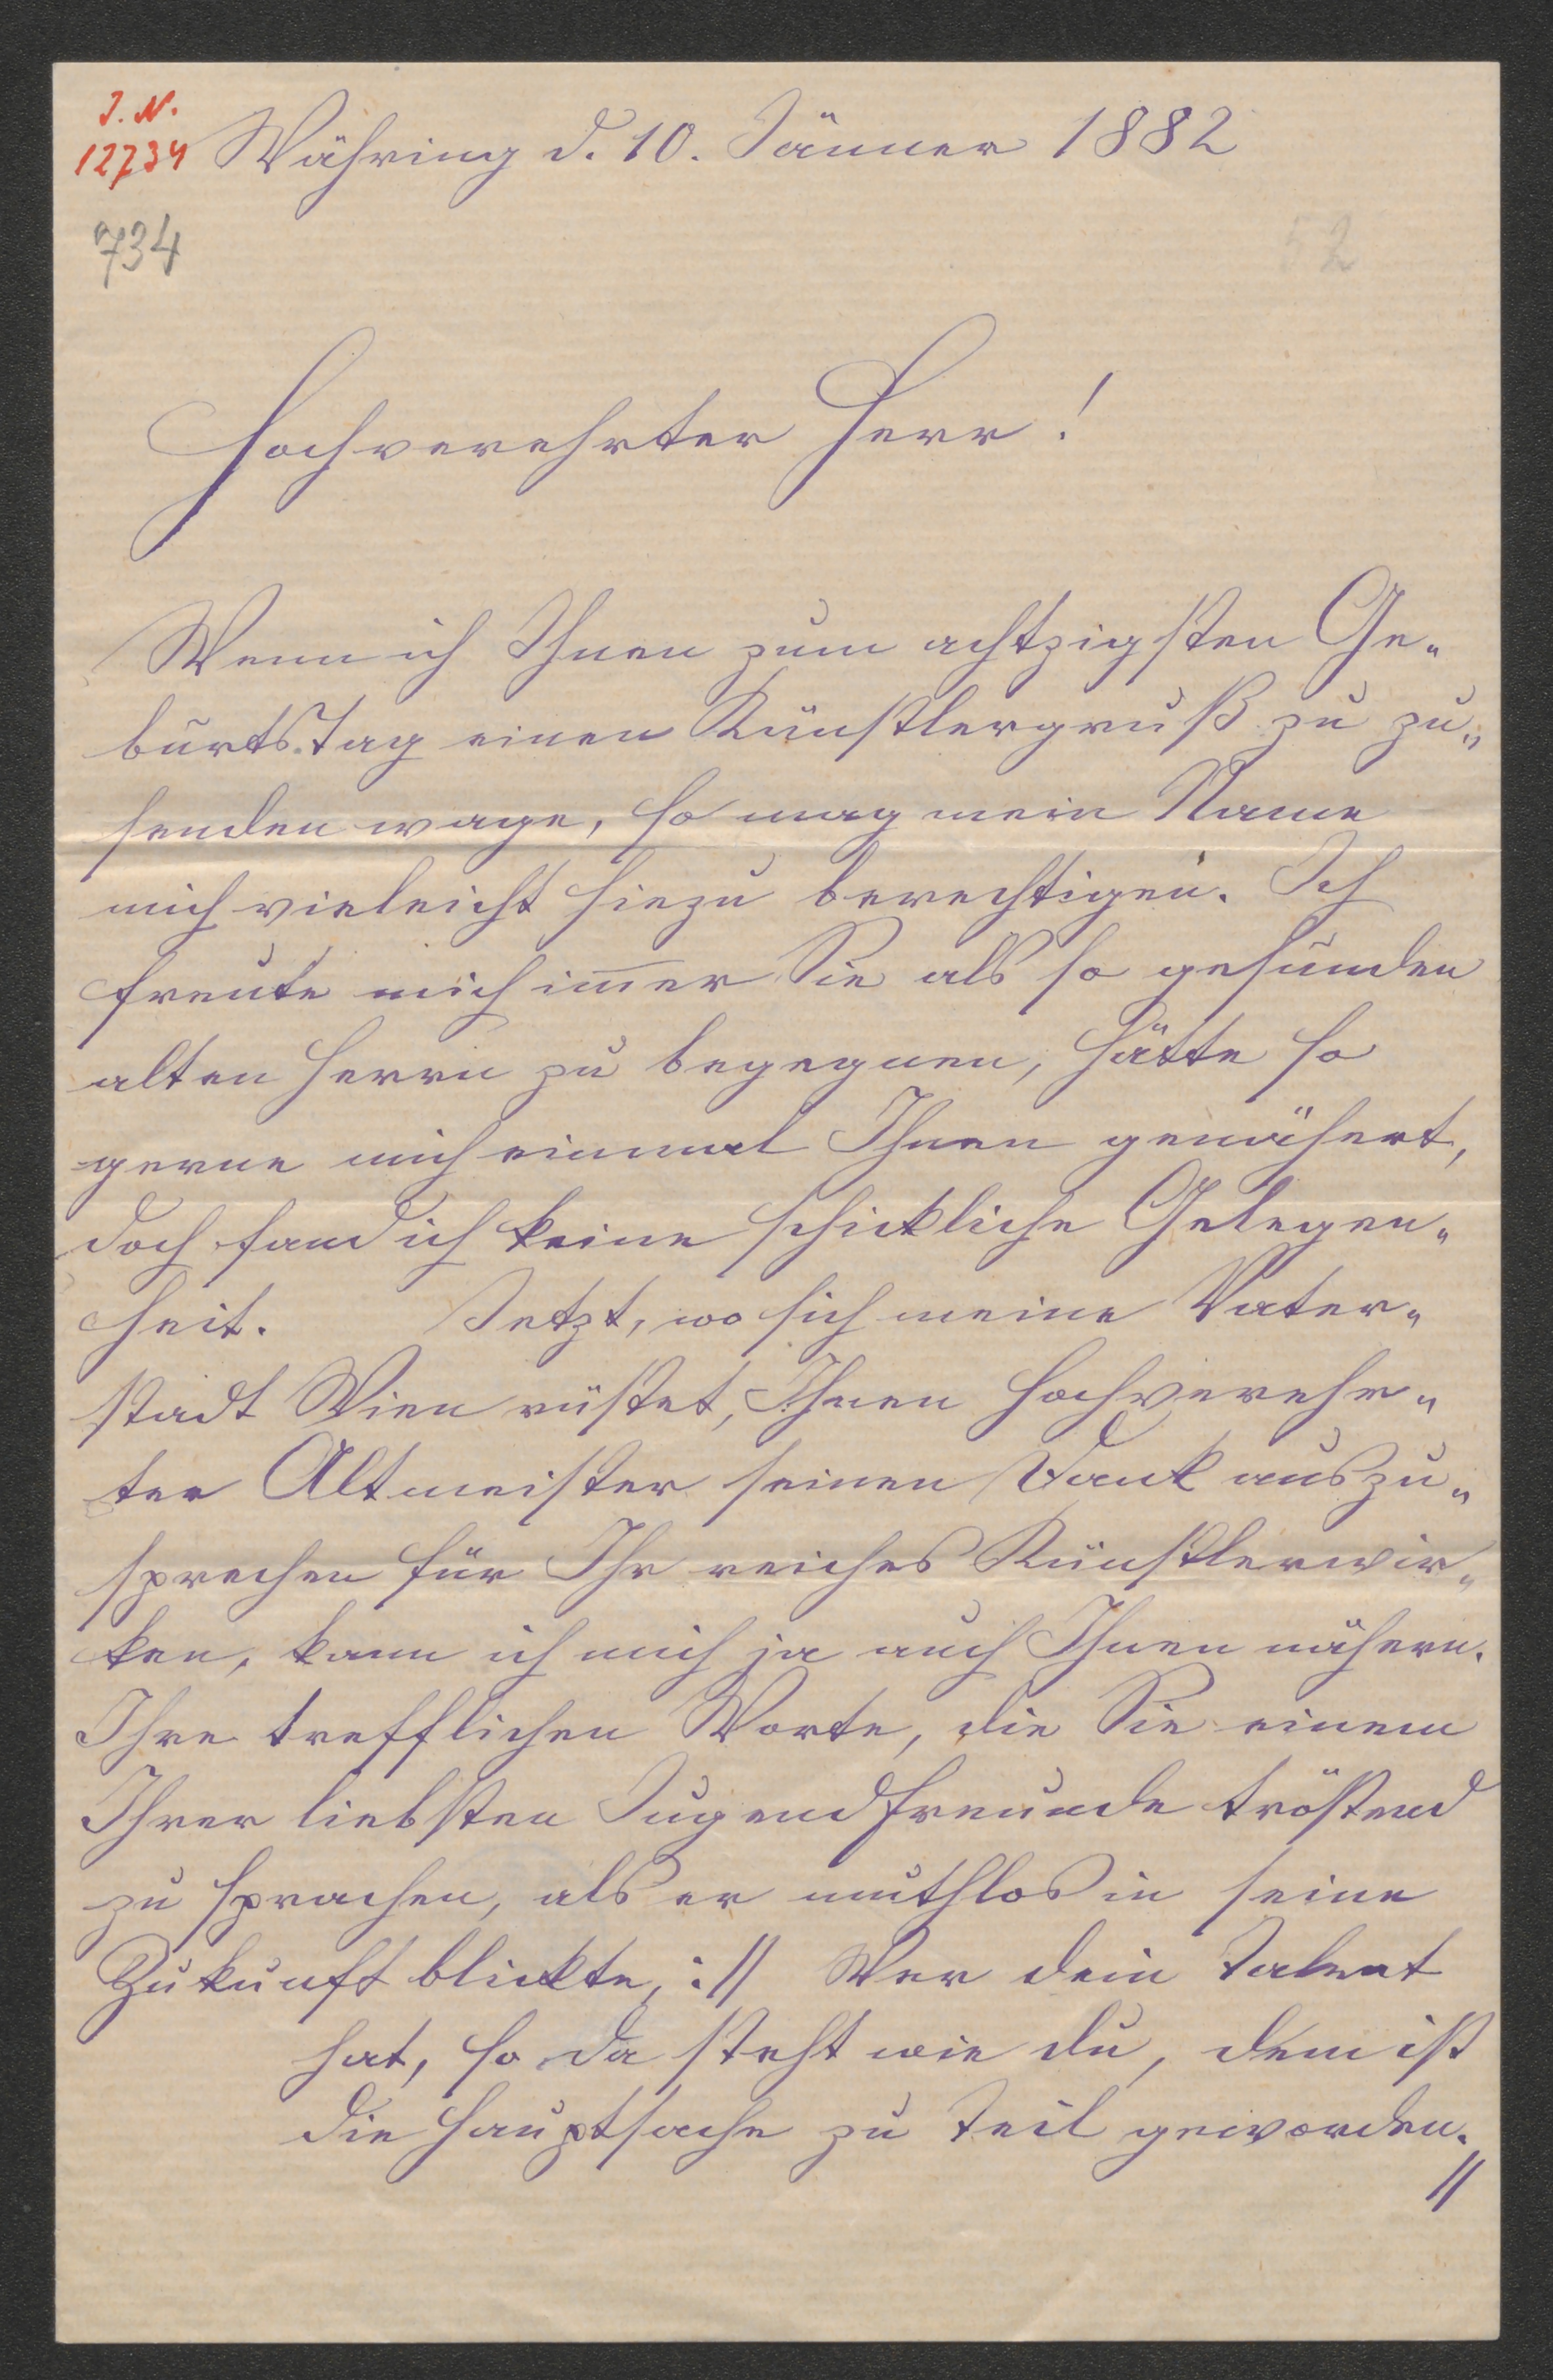 J. N.
12734 Währing d. 10. Jänner 1882
734
52
Hochverehrter Herr!
Wenn ich Ihnen zum achtzigsten Ge„
burts.tag einen Künstlergruß zu zu„
senden wage, so mag mein Name
mich vieleicht hiezu berechtigen. Ich
freute mich im̅er Sie als so gesunden
alten Herrn zu begegnen, hätte so
gerne mich einmal Ihnen genähert,
doch fand ich keine schickliche Gelegen„
heit. Jetzt, wo sich meine Vater„
stadt Wien rüstet, Ihnen hochverehr„
ter Altmeister seinen Dank auszu„
sprechen für Ihr reiches Künstlerwir„
ken, kann ich mich ja auch Ihnen nähern.
Ihre trefflichen Worte, die Sie einem
Ihrer liebsten Jugendfreunde tröstend
zu sprachen, als er muthlos in seine
Zukunft blickte, :// Wer dein Talent
hat, so da steht wie du, dem ist
die Hauptsache zu Teil geworden.
//